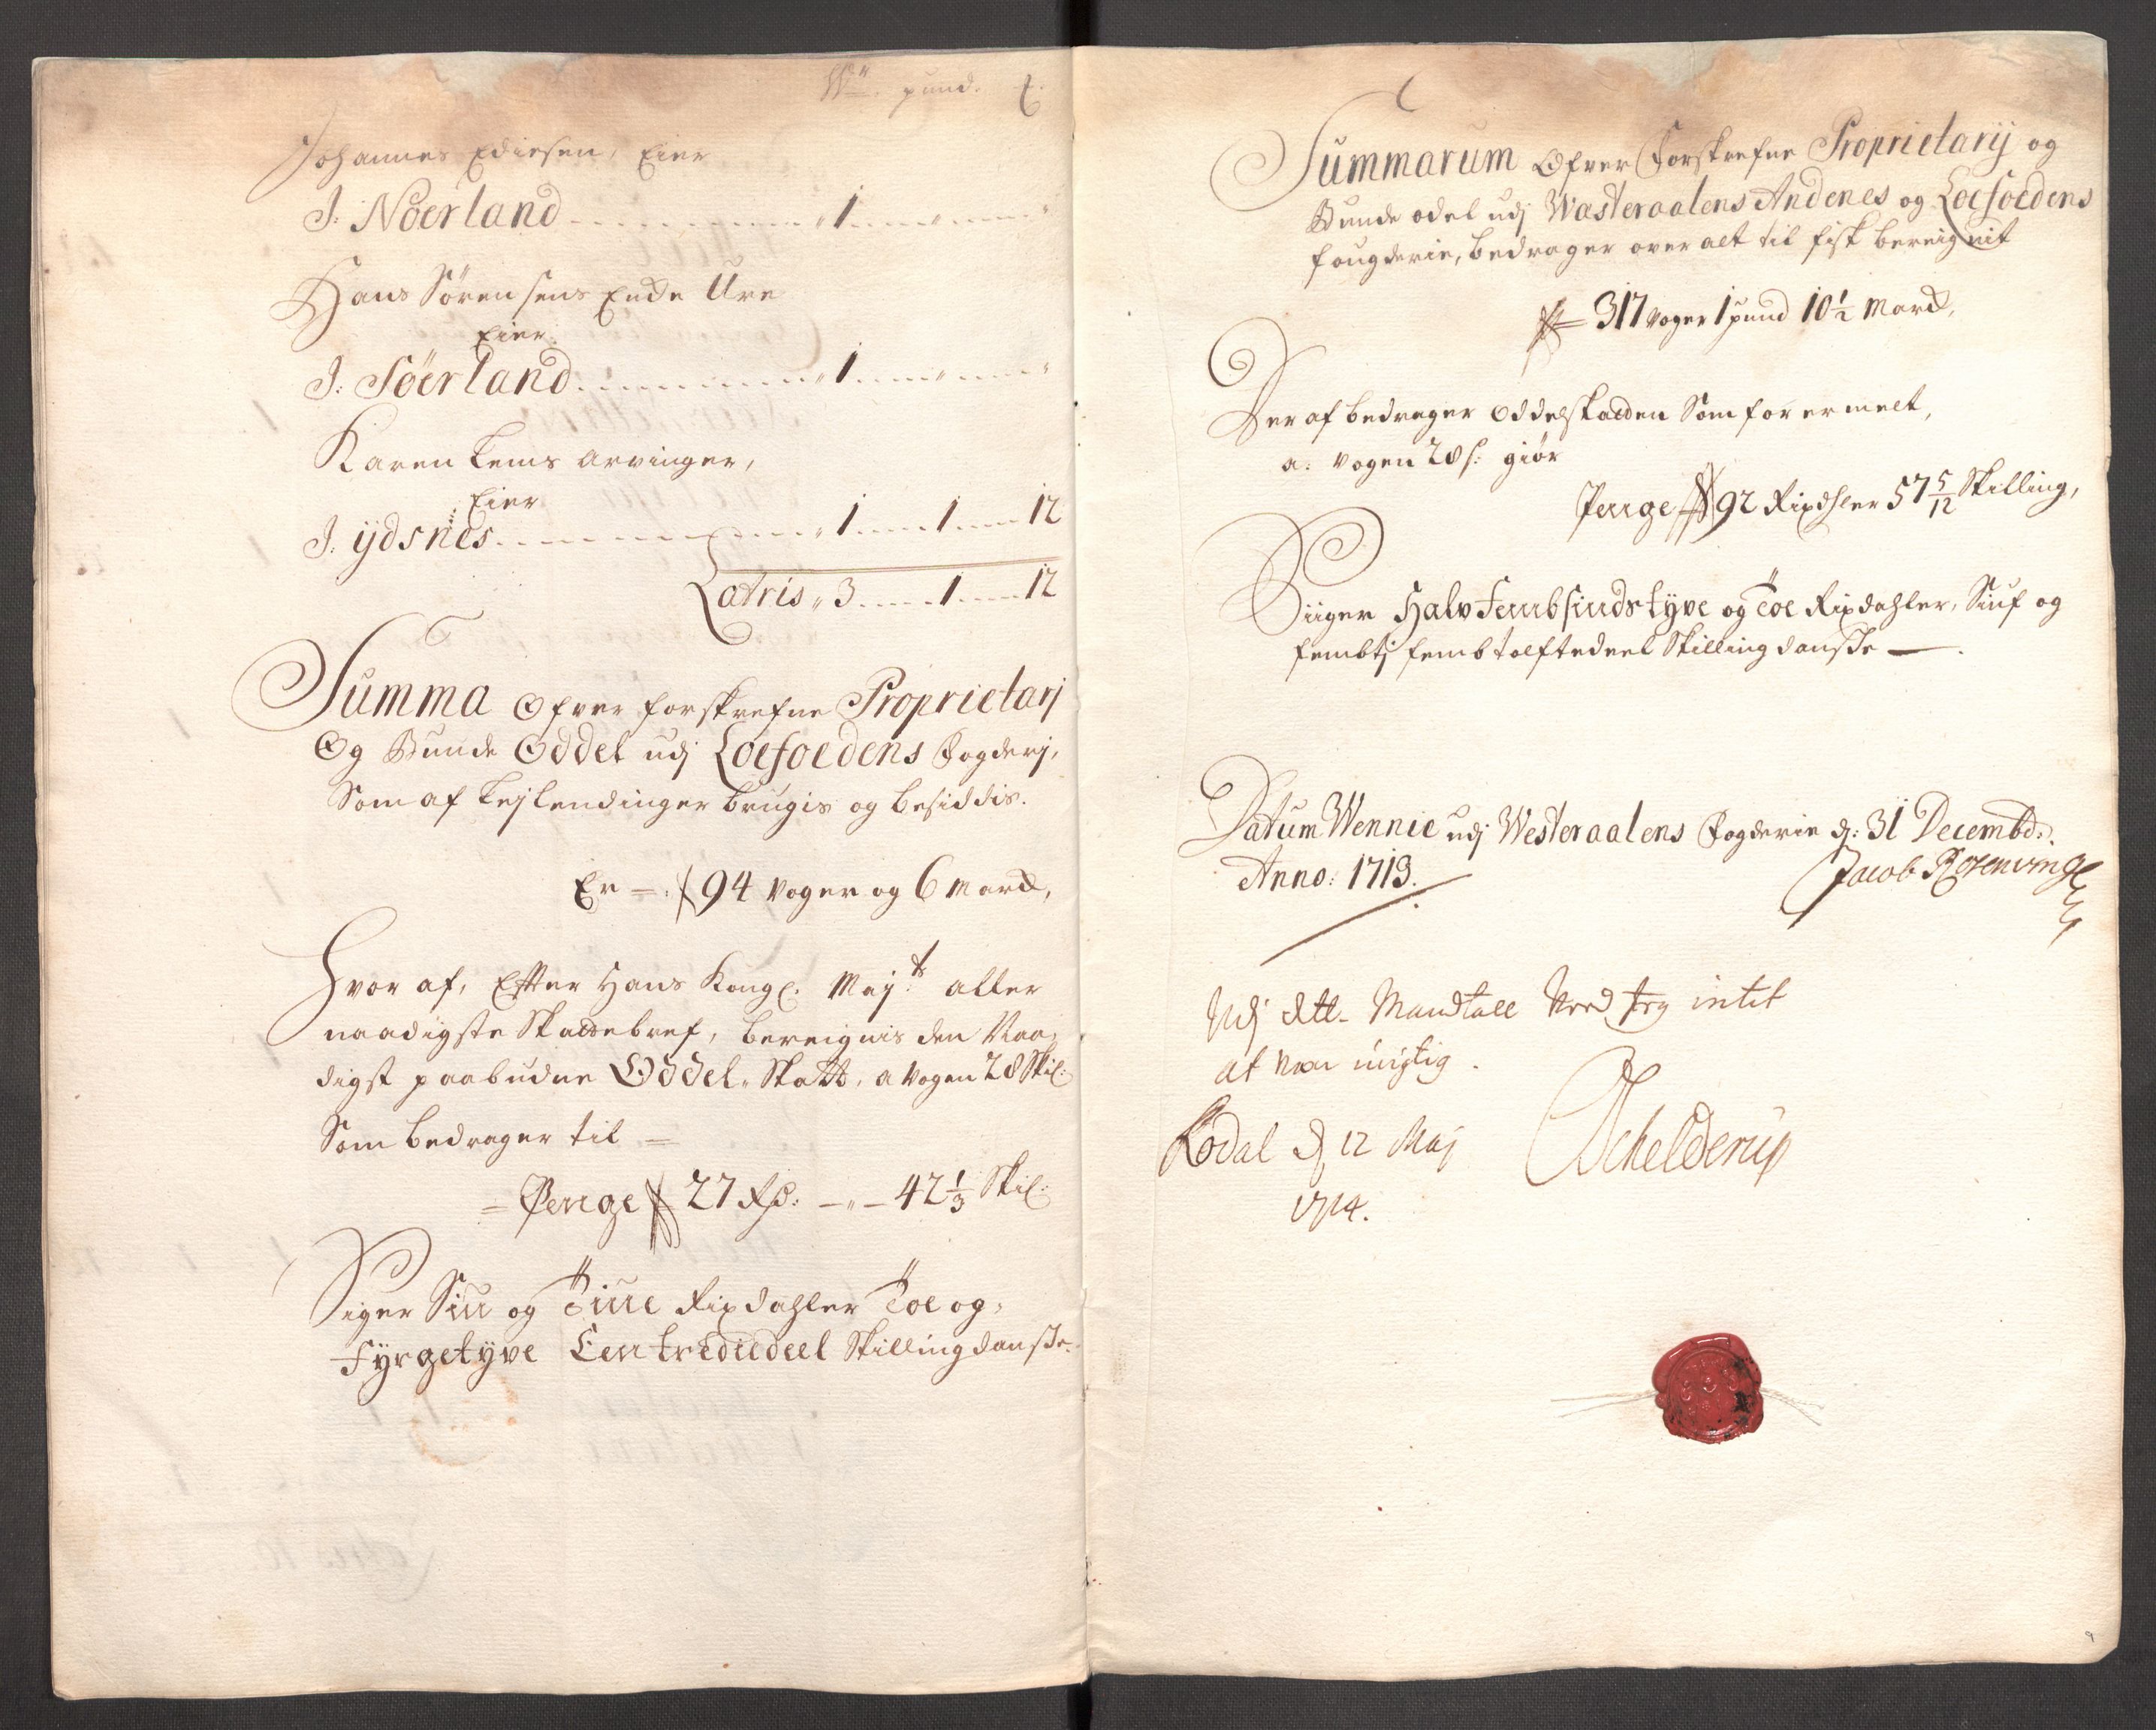 W: pund. ℔.
Johannes Ediesen, Eier
J: Nöerland 1
Hans Sörensens Ende Ure
Eier
J: Söerland 1
Karen Lems Arvinger,
Eier
J: ÿdsnes 1 1 12
Latris 3 1 12
Summa Ofver forskrefne Proprietarj
Og Bunde Oddel udj Loefoedens Fogderj,
Som af Lejlendinger brugis og besiddis.
Er 94 Voger og 6 Marck,
Hvor af, Efter Hans Kongl: Maj:ts aller
naadigste Skattebref, bereignis den Naa-
digst paabudne Oddel Skatt, a Vogen 28 Skil:
Som bedrager til
Penge 27 Rd: 42 1/3 Skil:
Siger Siu og Tiue Rixdahler Toe og
Fÿrgetÿve Een trediedeel Skilling danske
Summarum Ofver Forskrefne Proprietarij og
Bunde odel udj Wasteraalens Andenes og Loefoedens
fougderie, bedrager over alt til fisk bereignit
317 Voger 1 pund 10 1/2 Marck,
Der af bedrager Oddelskatten Som for ermelt,
a: Vogen 28 s: giör
Penge 92 Rixdhler 57 5/12 Skilling,
Siiger Halv Fembsindstÿve og Toe Rixdahler, Siuf og
fembtj femb tolftedeel Skilling danske
Datum Wennie udj Westeraalens Fogderie d: 31 Decembr:
Anno: 1713.
Jacob Rosenvinge
Udj dtt Mandtall Veed Jeg intet
at Vær urigtig.
Rödal d 12 Maj
Schelderup
1714.
9